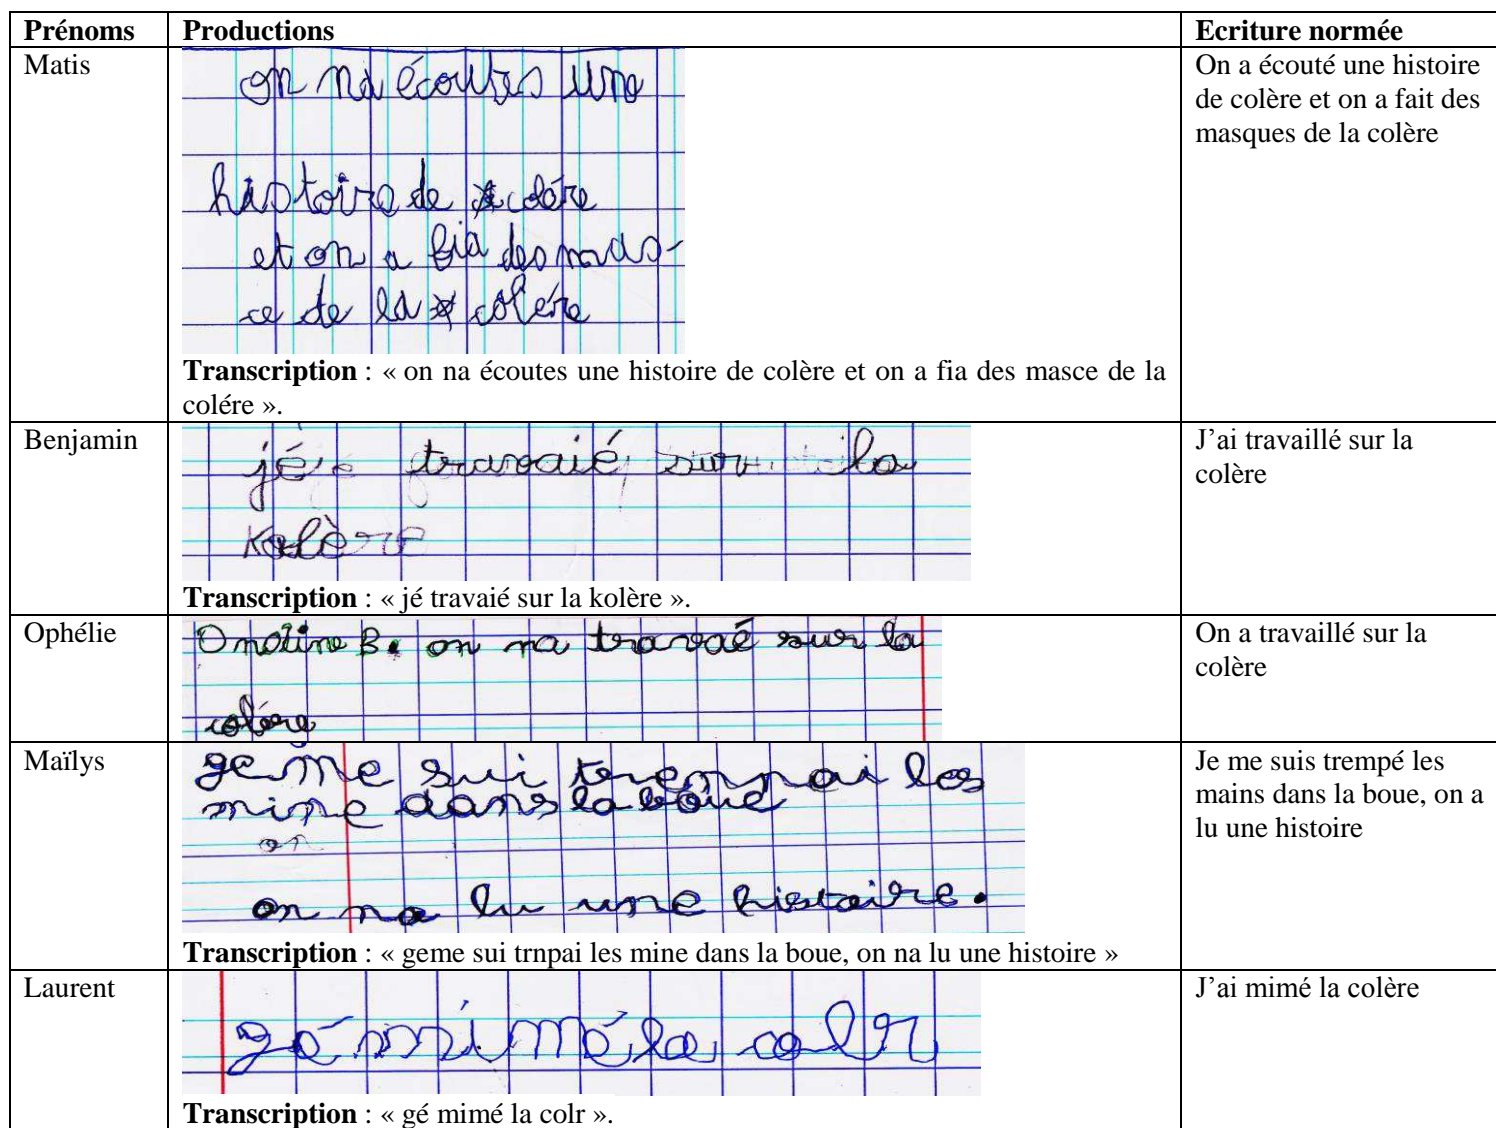 Prénoms Productions Ecriture normée
Matis
on na écoutes une
histoire de colére
et on a fia des mas-
ce de la colére
Transcription : « on na écoutes une histoire de colère et on a fia des masce de la
colére ».
On a écouté une histoire
de colère et on a fait des
masques de la colère
Benjamin
jé travaié sur la
Kolère
Transcription : « jé travaié sur la kolère ».
J’ai travaillé sur la
colère
Ophélie
B. on na travaé sur la
colére
On a travaillé sur la
colère
Maïlys
ge me sui trenpai les
mine dans la boue
on
on na lu une histoire.
Transcription : « geme sui trnpai les mine dans la boue, on na lu une histoire »
Je me suis trempé les
mains dans la boue, on a
lu une histoire
Laurent
gé mimé la colr
Transcription : « gé mimé la colr ».
J’ai mimé la colère